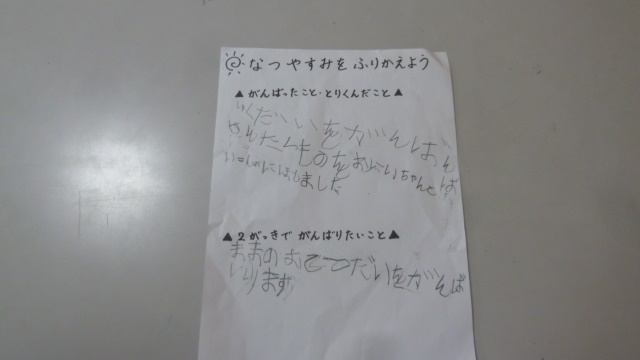 なつやすみをふりかえよう
▲がんばったこと・とりくんだこと▲
いをがんば
たしものをおにいちゃんと
いっしょにはしました
▲2がっきでがんばりたいこと▲
ままのおてつだいをがんば
ります